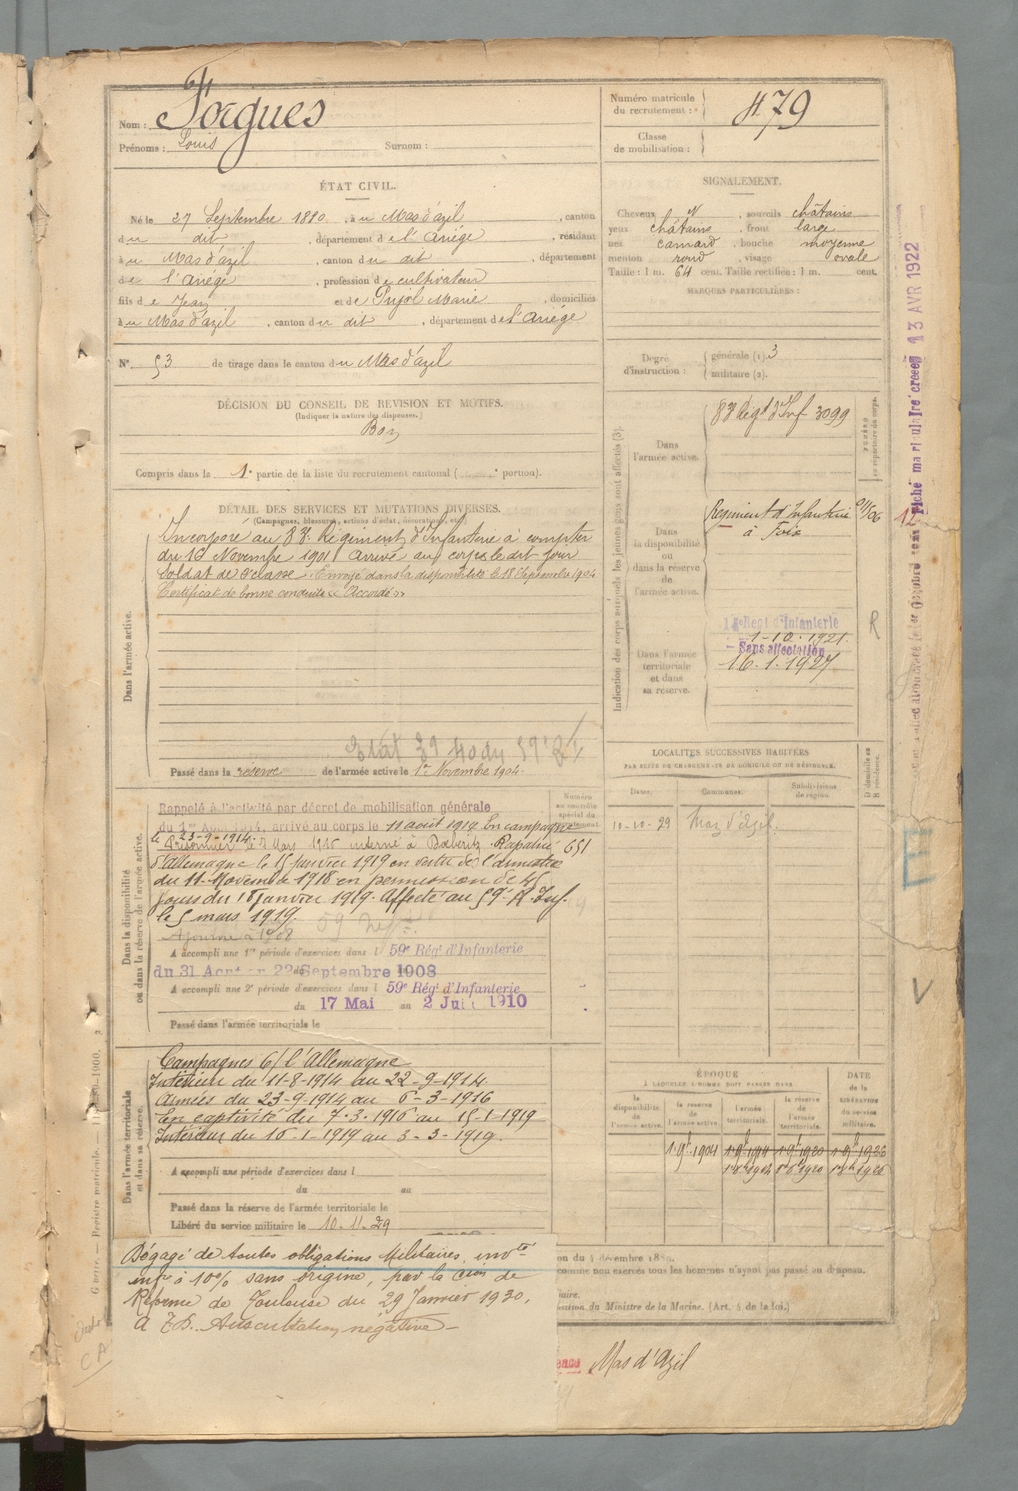 Nom : Forgues
Prénoms : Louis Surnom :
Numéro matricule du recrutement : 479
Classe de mobilisation :
ÉTAT CIVIL.
Né le 27 Septembre 1880, à u Mas d'azil, canton
d u dit, département d e l'Ariége, résidant
à u Mas d'azil, canton d u dit, département
d e l'Ariége, profession d e cultivateur
fils d e Jean et d e Pujol Marie, domiciliés
à u Mas d'azil, canton d u dit, département d e l'Ariége
N° 53 de tirage dans le canton d u Mas d'azil
SIGNALEMENT.
Cheveux N, sourcils châtains
yeux châtains, front large
nez camard, bouche moyenne
menton rond, visage ovale
Taille : 1 m. 64 cent. Taille rectifiée : 1 m. cent.
MARQUES PARTICULIÈRES :
Degré d'instruction : générale (1). 3
militaire (2).
DÉCISION DU CONSEIL DE REVISION ET MOTIFS.
(Indiquer la nature des dispenses.)
Bon
Compris dans la 1e partie de la liste du recrutement cantonal ( portion).
DÉTAIL DES SERVICES ET MUTATIONS DIVERSES.
(Campagnes, blessures, actions d'éclat, décorations, etc.)
Dans l'armée active.
Incorporé au 83e Régiment d'Infanterie à compter
du 16 Novembre 1901 Arrivé au corps le dit jour
Soldat de 2e classe. Envoyé dans la disponibilité le 18 Septembre 1904
Certificat de bonne conduite « Accordé »
Passé dans la réserve de l'armée active le 1er Novembre 1904.
Indication des corps auxquels les jeunes gens sont affectés (3).
Dans l'armée active.
83e Régt d'Inf 3099
NUMÉRO au répertoire du corps.
Dans la disponibilité ou dans la réserve de l'armée active.
Regiment d'Infanterie
à Foix
Dans l'armée territoriale et dans sa réserve.
Régt d'Infanterie
1-10-1921
Sans affectation
16.1.1927
R
13 AVR 1922
LOCALITÉS SUCCESSIVES HABITÉES
PAR SUITE DE CHANGEMENTS DE DOMICILE OU DE RÉSIDENCE.
Dates. Communes. Subdivisions de région. D domicile ou R résidence.
10-10-29 Maz d'Azil.
Dans la disponibilité ou dans la réserve de l'armée active.
Numéro au contrôle spécial du recrutement
651
Rappelé à l'activité par décret de mobilisation générale
du 1er Août 1914, arrivé au corps le 11 août 1914 En campagne
le 23-9-1914
Prisonnier le 7 Mars 1916 interné à Rapatrié
d'Allemagne le 15 Janvier 1919 en vertu de l'armistice
du 11 Novembre 1918 en permission de 45
jours du 16 Janvier 1919. Affecté au 59e R. Inf.
le 5 mars 1919.
Ajourné à 1908
A accompli une 1re période d'exercices dans l 59e Rég. d'Infanterie
du 31 Août au 22 Septembre 1908
A accompli une 2e période d'exercices dans l 59e Rég. d'Infanterie
du 17 Mai au 2 Juin 1910
Passé dans l'armée territoriale le
Dans l'armée territoriale et dans sa réserve.
Campagnes C/ l'Allemagne
Intérieur du 11-8-1914 au 22-9-1914
Armées du 23-9-1914 au 6-3-1916
En captivité du 7.3.1916 au 15-1-1919
Intérieur du 16-1-1919 au 3-3-1919.
A accompli une période d'exercices dans l
du au
Passé dans la réserve de l'armée territoriale le
Libéré du service militaire le 10-11-29
ÉPOQUE
À LAQUELLE L'HOMME DOIT PASSER DANS
la disponibilité de l'armée active. la réserve de l'armée active. l'armée territoriale. la réserve de l'armée territoriale.
DATE de la LIBÉRATION du service militaire.
Dégagé de toutes obligations Militaires, invté
infre à 10% sans origine, par la Cion de
Réforme de Toulouse du 29 Janvier 1930,
Auscultation négative
comme non exercés tous les hommes n'ayant pas passé au drapeau.
du Ministre de la Marine. (Art. 4 de la loi.)
Mas d'Azil
V
CA